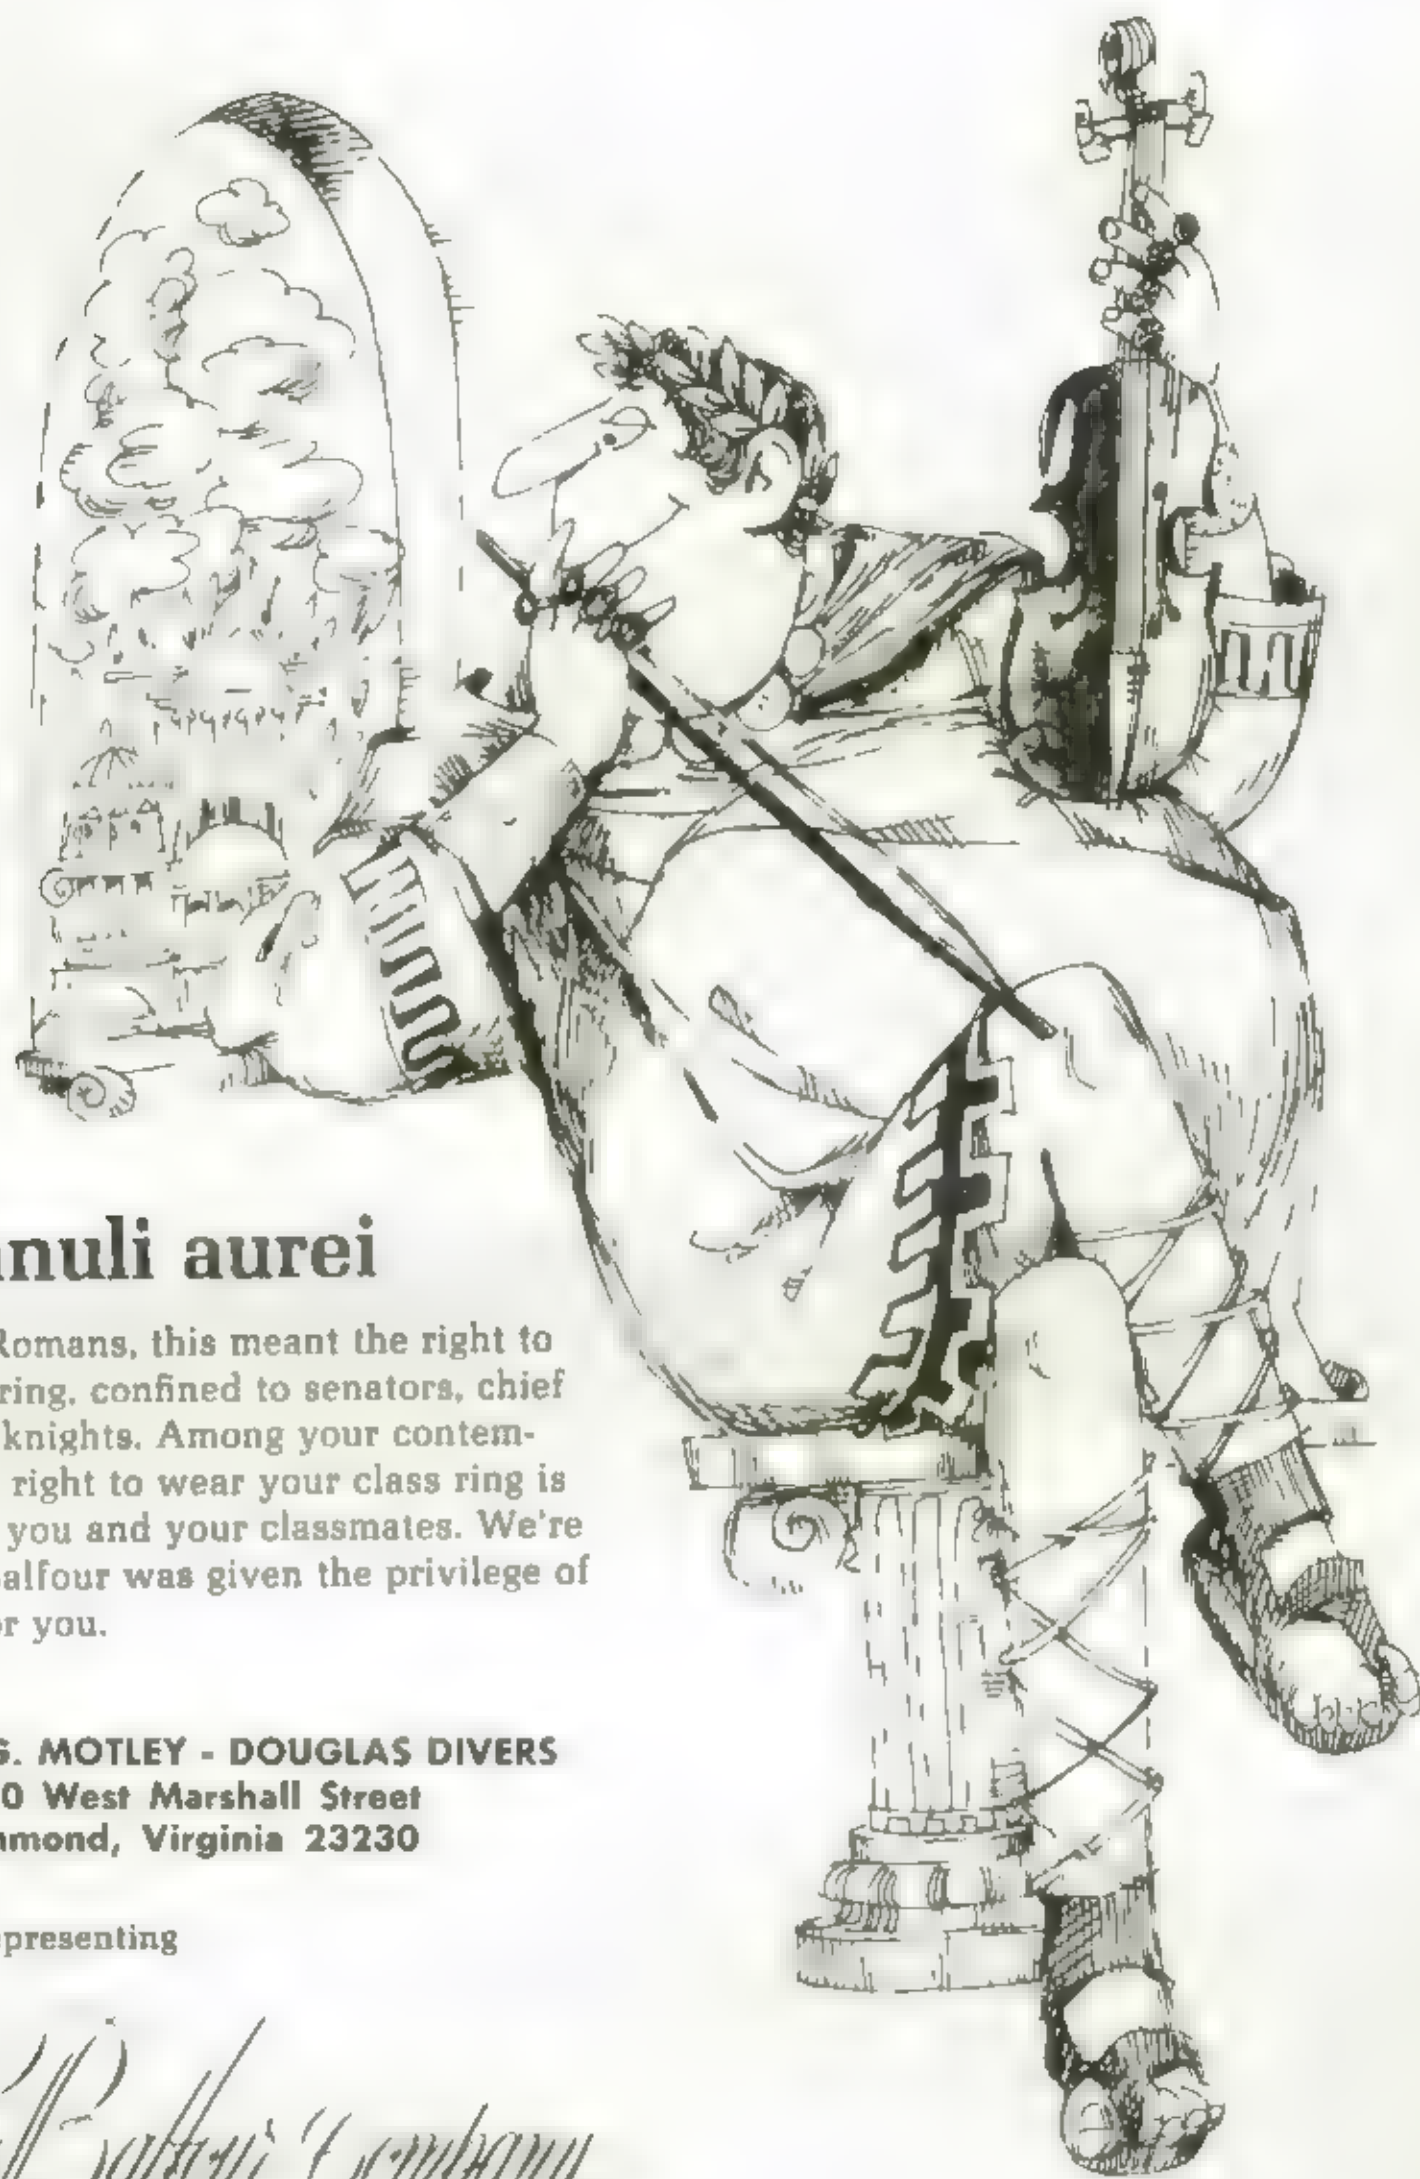 nuli aurei
Romans, this meant the right to
ring, confined to senators, chief
knights. Among your contem-
right to wear your class ring is
you and your classmates. We're
alfour was given the privilege of
r you.
G. MOTLEY - DOUGLAS DIVERS
0 West Marshall Street
mond, Virginia 23230
presenting
Company